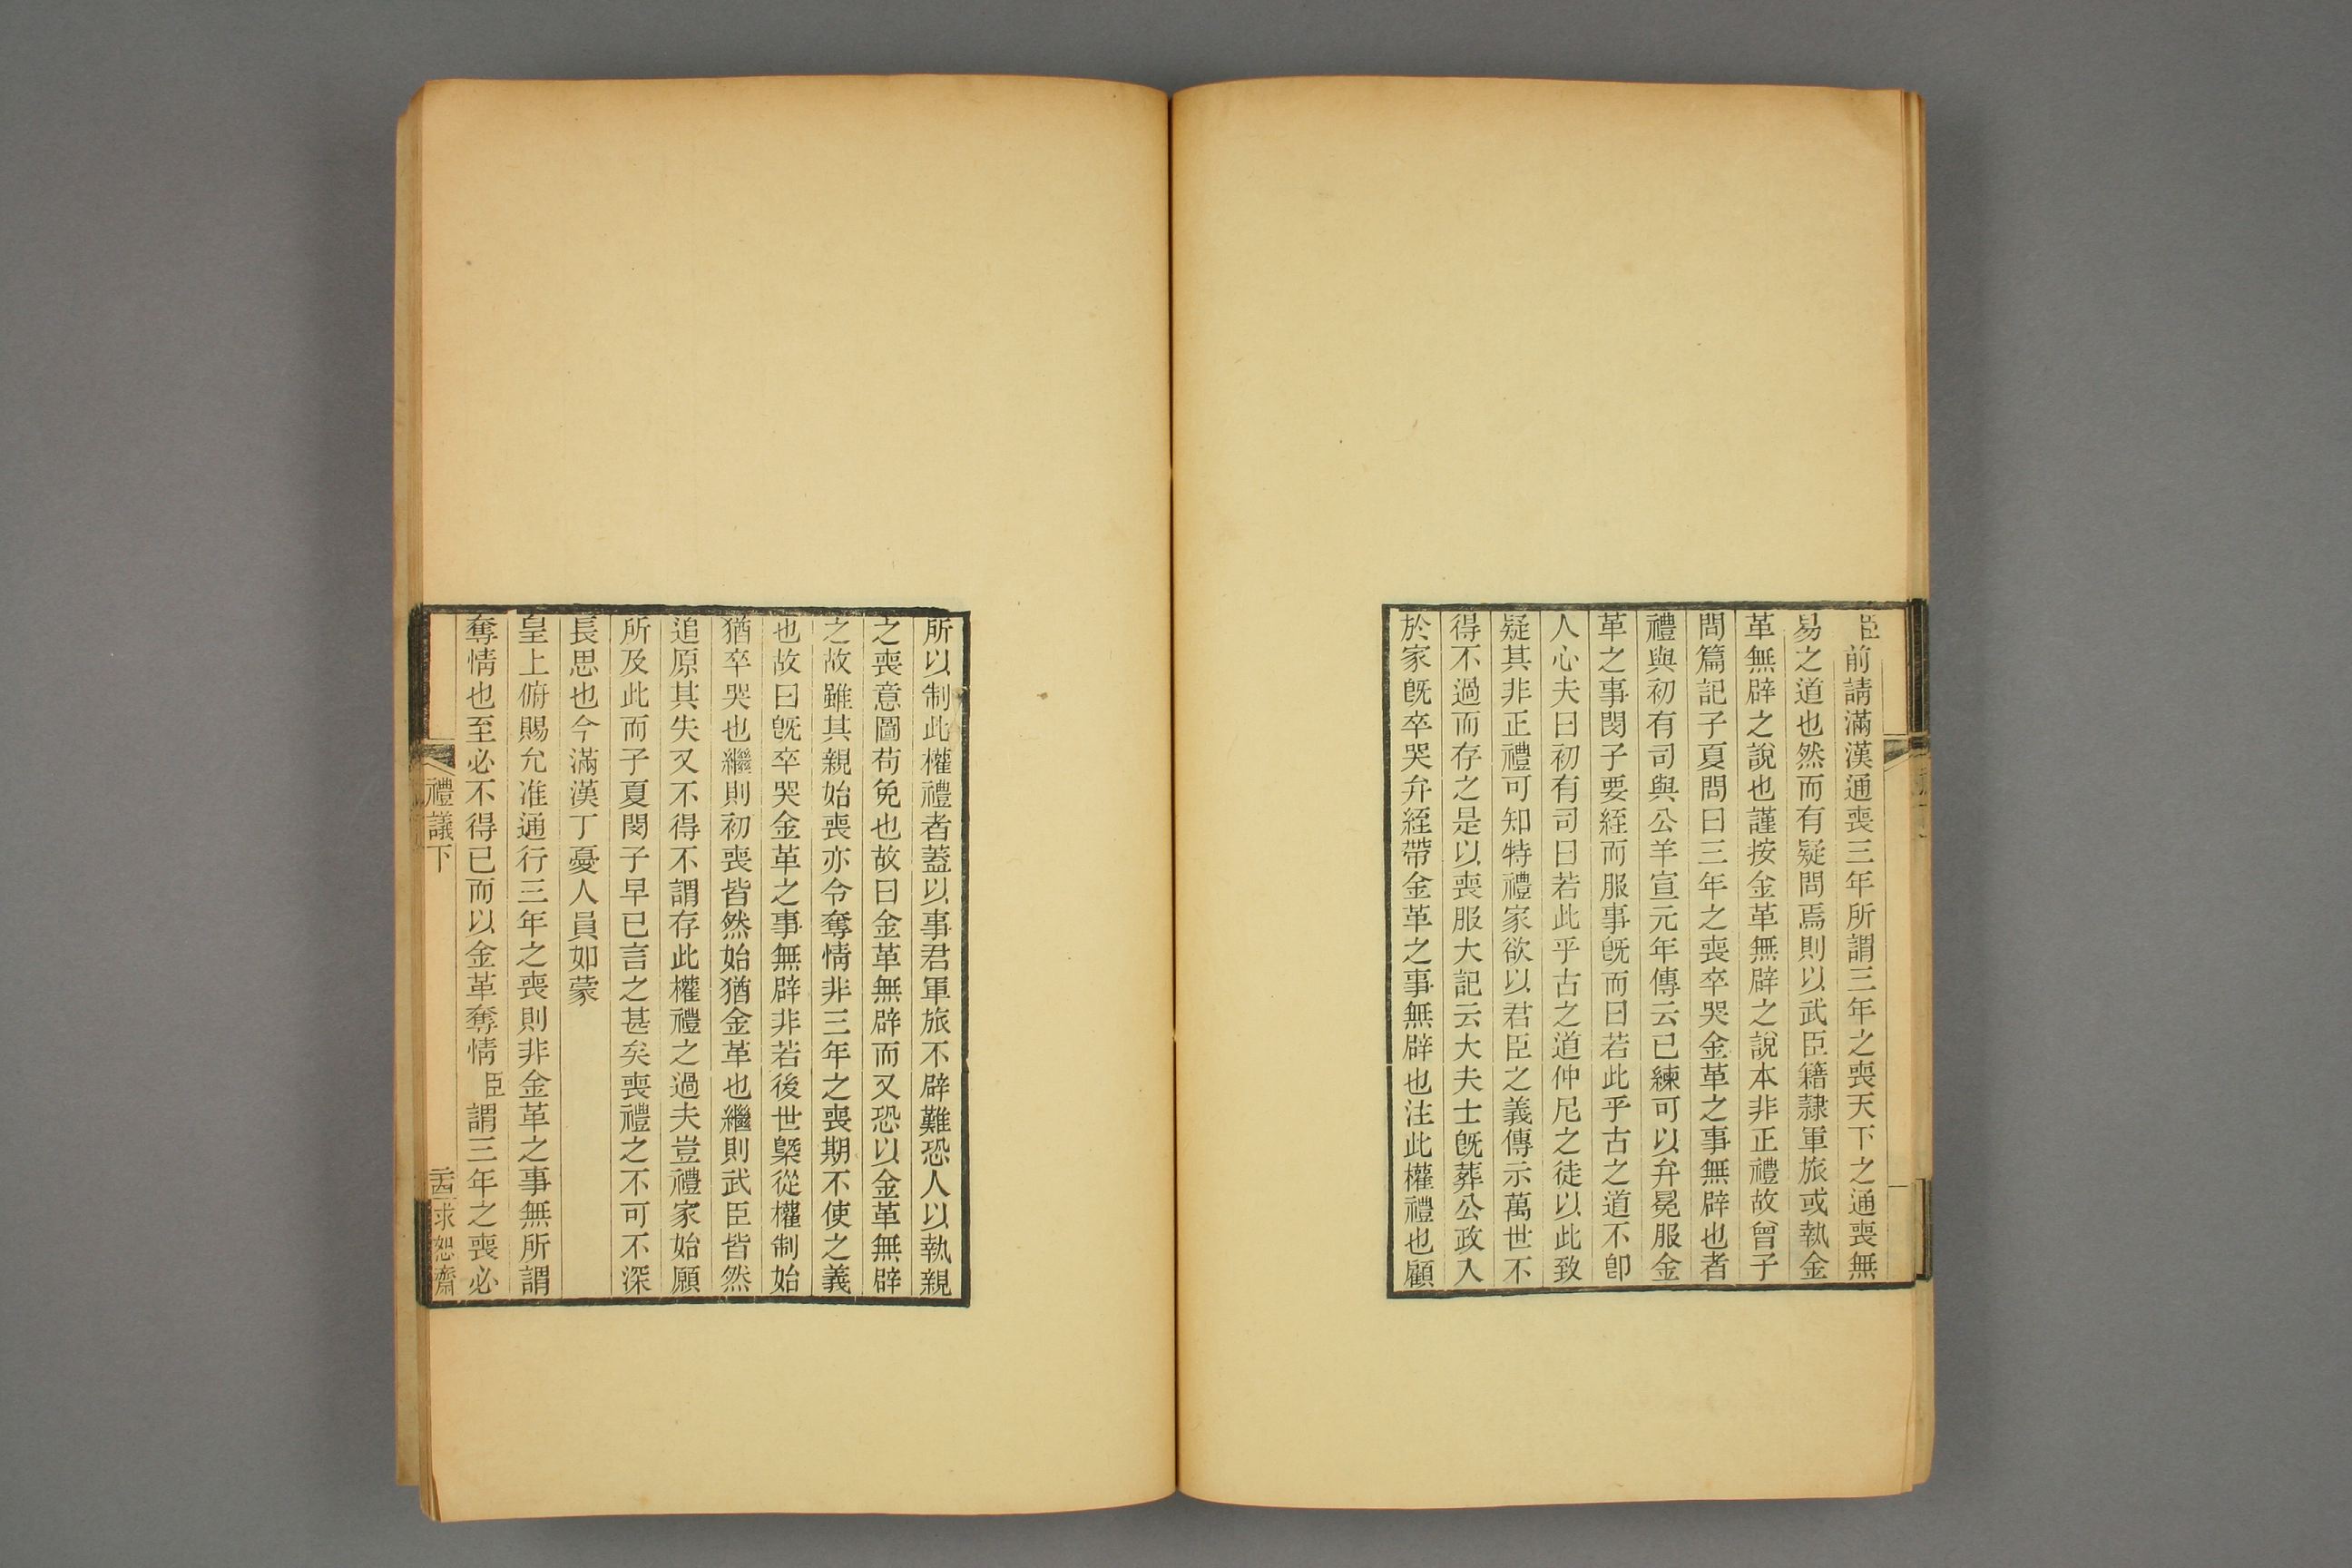 臣前請滿漢通喪三年所謂三年之喪天下之通喪無
易之道也然而有疑問焉則以武臣籍隷軍旅或執金
革無辟之說也謹按金革無辟之說本非正禮故曾子
問篇記子夏問曰三年之喪卒哭金革之事無辟也者
禮與初有司與公羊宣元年傳云已練可以弁冕服金
革之事閔子要絰而服事旣而曰若此乎古之道不卽
人心夫曰初有司曰若此乎古之道仲尼之徒以此致
疑其非正禮可知特禮家欲以君臣之義傳示萬世不
得不過而存之是以喪服大記云大夫士旣葬公政入
於家旣卒哭弁絰帶金革之事無辟也注此權禮也顧
所以制此權禮者蓋以事君軍旅不辟難恐人以執親
之喪意圖苟免也故曰金革無辟而又恐以金革無辟
之故雖其親始喪亦令奪情非三年之喪期不使之義
也故曰旣卒哭金革之事無辟非若後世槩從權制始
猶卒哭也繼則初喪皆然始猶金革也繼則武臣皆然
追原其失又不得不謂存此權禮之過夫豈禮家始願
所及此而子夏閔子早已言之甚矣喪禮之不可不深
長思也今滿漢丁憂人員如蒙
皇上俯賜允准通行三年之喪則非金革之事無所謂
奪情也至必不得已而以金革奪情臣謂三年之喪必
禮議下
二十四
求恕齋